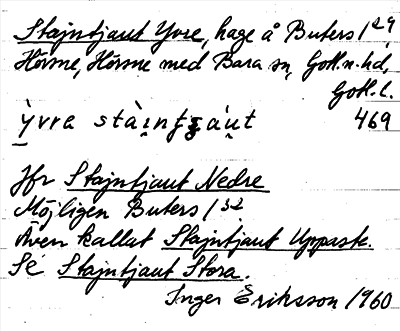 Stajntjaut Yvre, hage å Buters 1²⁹,
Hörsne, Hörsne med Bara sn, Gotl. n. hd,
Gotl. l.
ỳvra stàintjàut 469
Jfr Stajntjaut Nedre
Möjligen Buters 1³²
Även kallat Stajntjaut Uppaste.
Se Stajntjaut Stora.
Inger Eriksson 1960